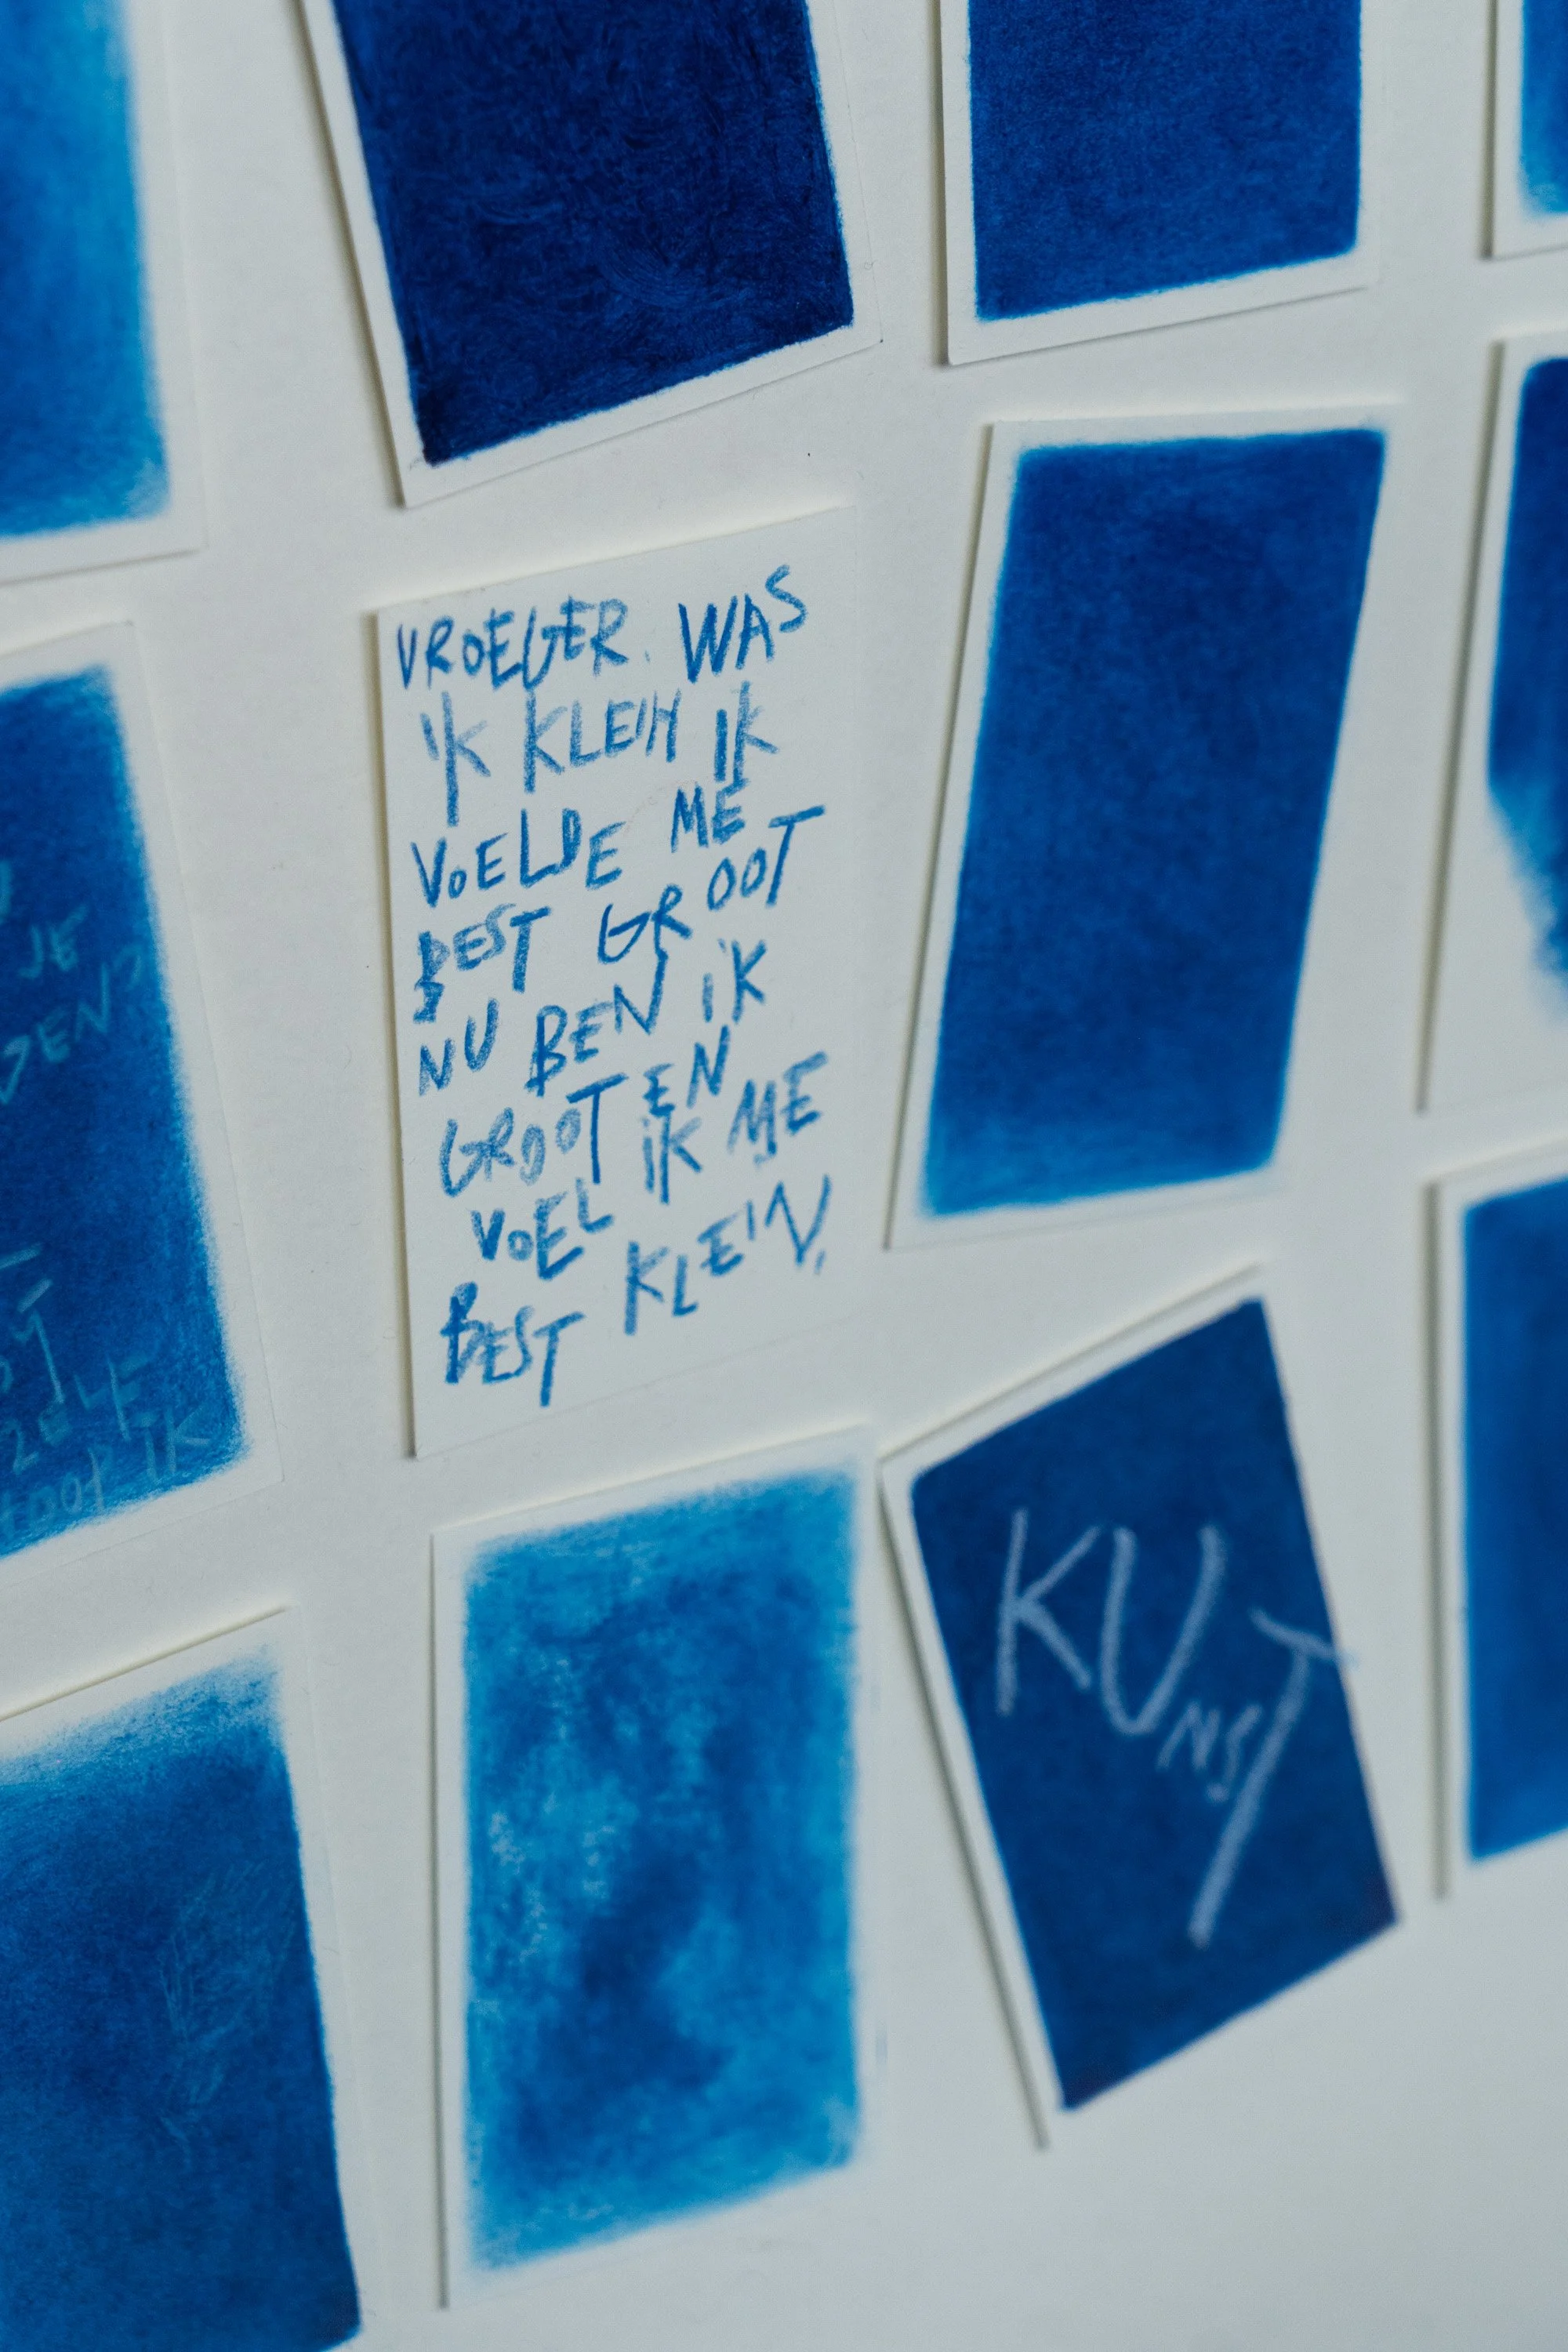 VROEGER WAS
IK KLEIN IK
VOELDE ME
BEST GROOT
NU BEN IK
GROOT EN
VOEL IK ME
BEST KLEIN.
JE
ZELF
IK
KUNST